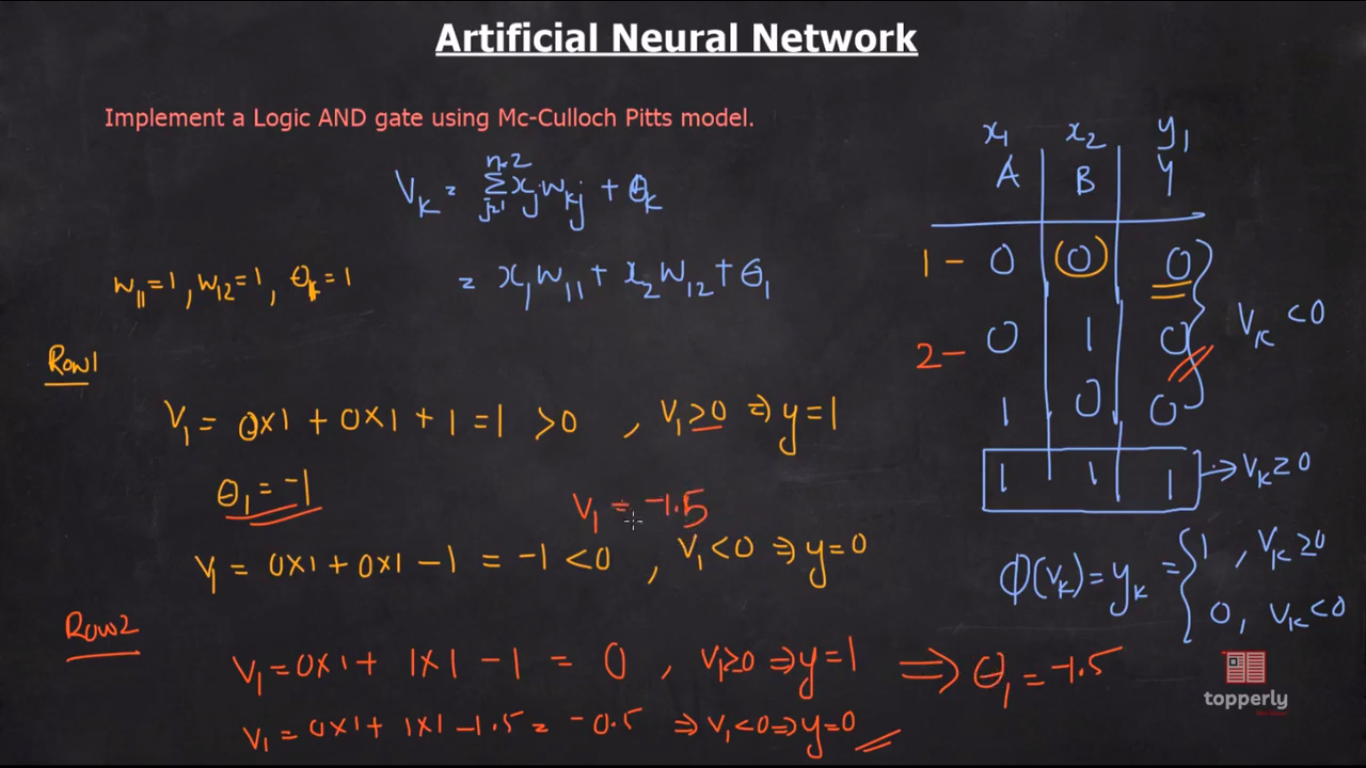 Artificial Neural Network
Implement a Logic AND gate using Mc-Culloch Pitts model.
V_K = Σ_{j=1}^{n=2} x_j w_{kj} + θ_K
= x_1 w_{11} + x_2 w_{12} + θ_1
w_{11}=1, w_{12}=1, θ_k=1
Row1
V_1 = 0×1 + 0×1 + 1 = 1 >0 , V_1≥0 ⇒ y=1
θ_1 = -1
V_1 = -1.5
V_1 = 0×1 + 0×1 - 1 = -1 <0 , V_1<0 ⇒ y=0
Row2
V_1 = 0×1 + 1×1 - 1 = 0 , V_1≥0 ⇒ y=1 ⇒ θ_1 = -1.5
V_1 = 0×1 + 1×1 - 1.5 = -0.5 ⇒ V_1<0 ⇒ y=0
x_1 x_2 y_1
A B Y
1 - 0 0 0
2 - 0 1 0
1 0 0
V_K <0
1 1 1 → V_K ≥ 0
Φ(V_K) = y_K = { 1 , V_K ≥0
0, V_K <0
topperly